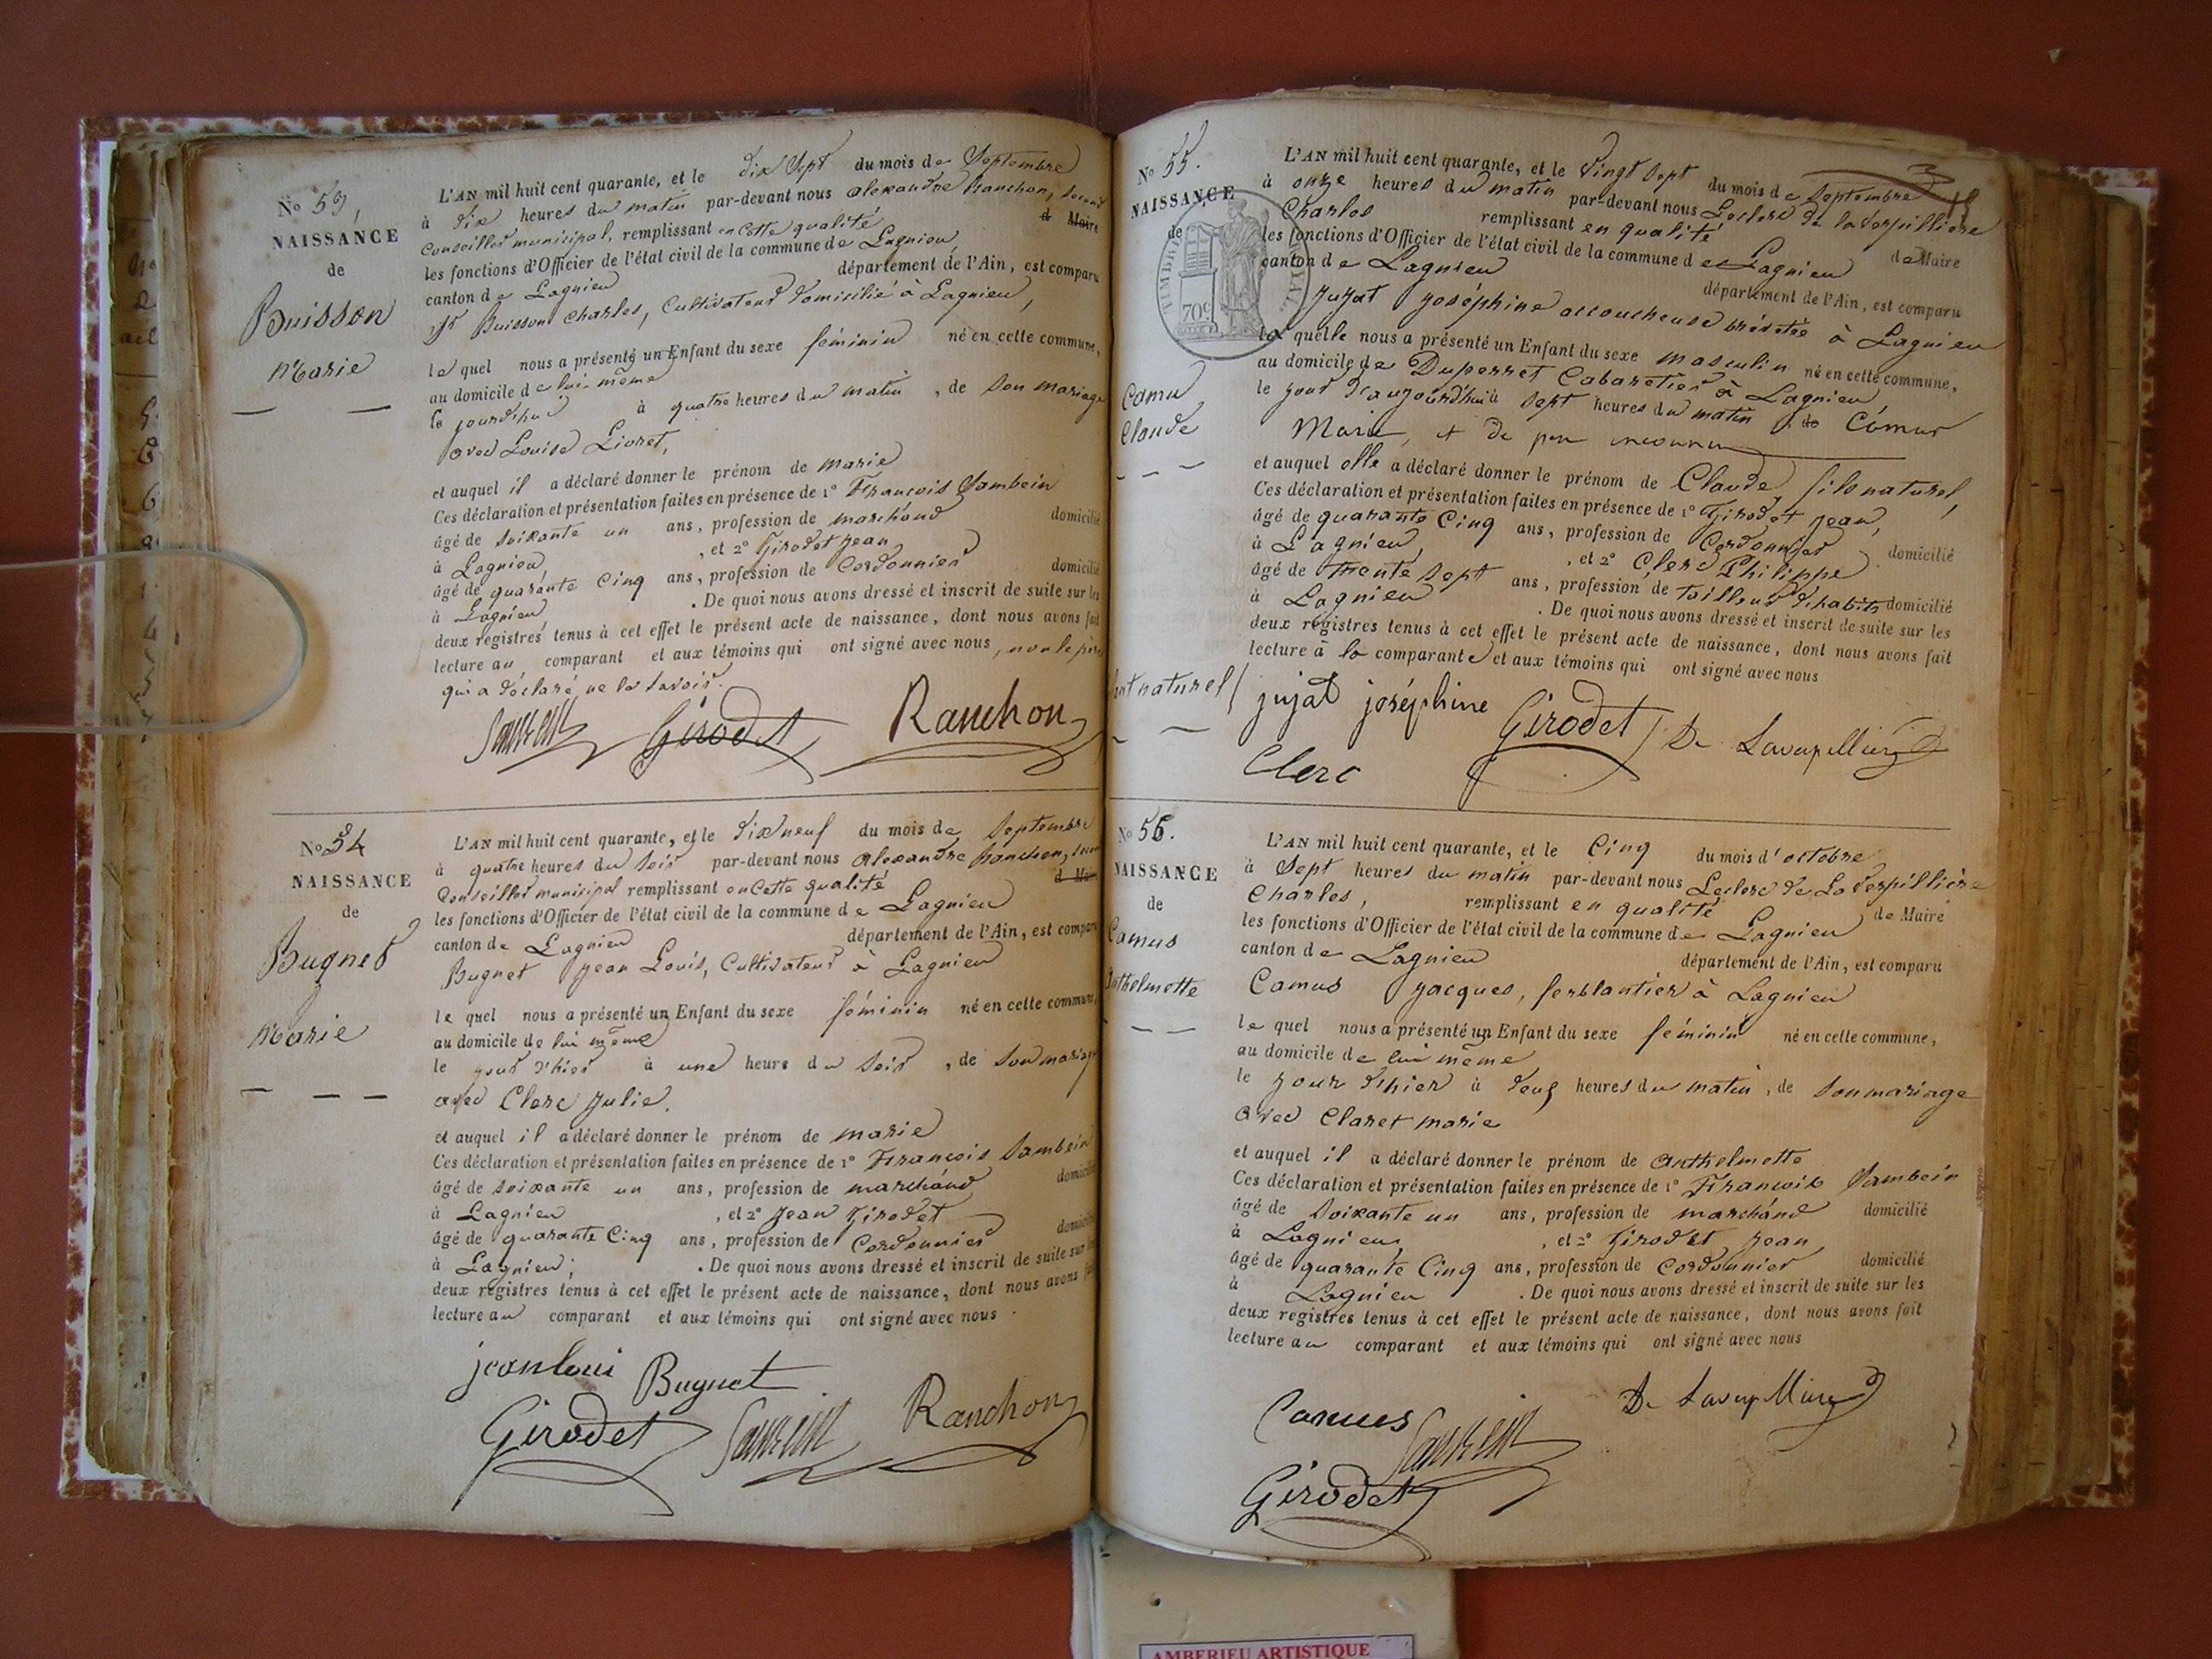 No 53,
NAISSANCE
de
Buisson
Marie
L'AN mil huit cent quarante, et le dix Sept du mois de Septembre
à dix heures du matin par-devant nous alexandre Ranchon, second
Conseiller municipal, remplissant en cette qualité d Maire
les fonctions d'Officier de l'état civil de la commune de Lagnieu,
canton de Lagnieu département de l'Ain, est comparu
Sr Buisson Charles, Cultivateur domicilié à Lagnieu,
le quel nous a présenté un Enfant du sexe féminin né en cette commune,
au domicile de lui-même
le jourdhui à quatre heures du matin, de Son mariage
avec Louise Lioret,
et auquel il a déclaré donner le prénom de marie
Ces déclaration et présentation faites en présence de 1° François Sambein
âgé de Soixante un ans, profession de marchand domicilié
à Lagnieu, , et 2° Girodet jean
âgé de quarante Cinq ans, profession de Cordonnier domicilié
à Lagnieu . De quoi nous avons dressé et inscrit de suite sur les
deux registres tenus à cet effet le présent acte de naissance, dont nous avons fait
lecture au comparant et aux témoins qui ont signé avec nous, non le père
qui a déclaré ne le Savoir.
Girodet Ranchon
No 54
NAISSANCE
de
Bugnet
Marie
L'AN mil huit cent quarante, et le dix neuf du mois de Septembre
à quatre heures du Soir par-devant nous alexandre Ranchon, second
Conseiller municipal remplissant en Cette qualité d Maire
les fonctions d'Officier de l'état civil de la commune de Lagnieu
canton de Lagnieu département de l'Ain, est comparu
Bugnet jean Louis, Cultivateur à Lagnieu
le quel nous a présenté un Enfant du sexe féminin né en cette commune,
au domicile de lui même
le jour d'hier à une heure du Soir, de Son mariage
avec Clerc julie.
et auquel il a déclaré donner le prénom de marie
Ces déclaration et présentation faites en présence de 1° François Sambein
âgé de Soixante un ans, profession de marchand domicilié
à Lagnieu , et 2° jean Girodet
âgé de quarante Cinq ans, profession de Cordonnier domicilié
à Lagnieu; . De quoi nous avons dressé et inscrit de suite sur les
deux registres tenus à cet effet le présent acte de naissance, dont nous avons fait
lecture au comparant et aux témoins qui ont signé avec nous.
jeanloui Bugnet
Girodet Ranchon
No 55.
NAISSANCE
de
Camu
Claude
nt naturel
TIMBRE
70c
L'AN mil huit cent quarante, et le Vingt Sept du mois de Septembre
à onze heures du matin par-devant nous Leclerc de laverpillière
Charles remplissant en qualité de Maire
les fonctions d'Officier de l'état civil de la commune de Lagnieu
canton de Lagnieu département de l'Ain, est comparu
jujat joséphine accoucheuse brévetée à Lagnieu
la quelle nous a présenté un Enfant du sexe masculin né en cette commune,
au domicile de Duperret Cabaretier à Lagnieu
le jour d'aujourd'hui à Sept heures du matin, de Camus
Marie, et de père inconnu
et auquel elle a déclaré donner le prénom de Claude, fils naturel,
Ces déclaration et présentation faites en présence de 1° Girodet jean,
âgé de quarante Cinq ans, profession de Cordonnier domicilié
à Lagnieu, , et 2° Clerc Philippe
âgé de trente Sept ans, profession de tailleur d'habits domicilié
à Lagnieu . De quoi nous avons dressé et inscrit de suite sur les
deux registres tenus à cet effet le présent acte de naissance, dont nous avons fait
lecture à la comparante et aux témoins qui ont signé avec nous
jujat joséphine Girodet De Laverpilliere
Clerc
No 56.
NAISSANCE
de
Camus
Anthelmette
L'AN mil huit cent quarante, et le Cinq du mois d'octobre
à Sept heures du matin par-devant nous Leclerc de Laverpillière
Charles, remplissant en qualité de Maire
les fonctions d'Officier de l'état civil de la commune de Lagnieu
canton de Lagnieu département de l'Ain, est comparu
Camus jacques, ferblantier à Lagnieu
le quel nous a présenté un Enfant du sexe féminin né en cette commune,
au domicile de lui même
le jour d'hier à deux heures du matin, de Son mariage
avec Claret marie
et auquel il a déclaré donner le prénom de anthelmette
Ces déclaration et présentation faites en présence de 1° François Sambein
âgé de Soixante un ans, profession de marchand domicilié
à Lagnieu , et 2° Girodet jean
âgé de quarante Cinq ans, profession de Cordonnier domicilié
à Lagnieu . De quoi nous avons dressé et inscrit de suite sur les
deux registres tenus à cet effet le présent acte de naissance, dont nous avons fait
lecture au comparant et aux témoins qui ont signé avec nous
Camus De Laverpilliere
Girodet
AMBERIEU ARTISTIQUE